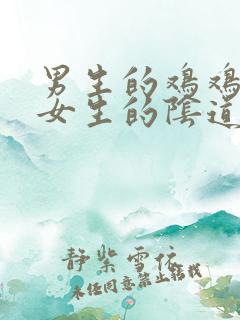 男生的鸡鸡
女生的阴道
静紫雪依
未经同意禁止转载